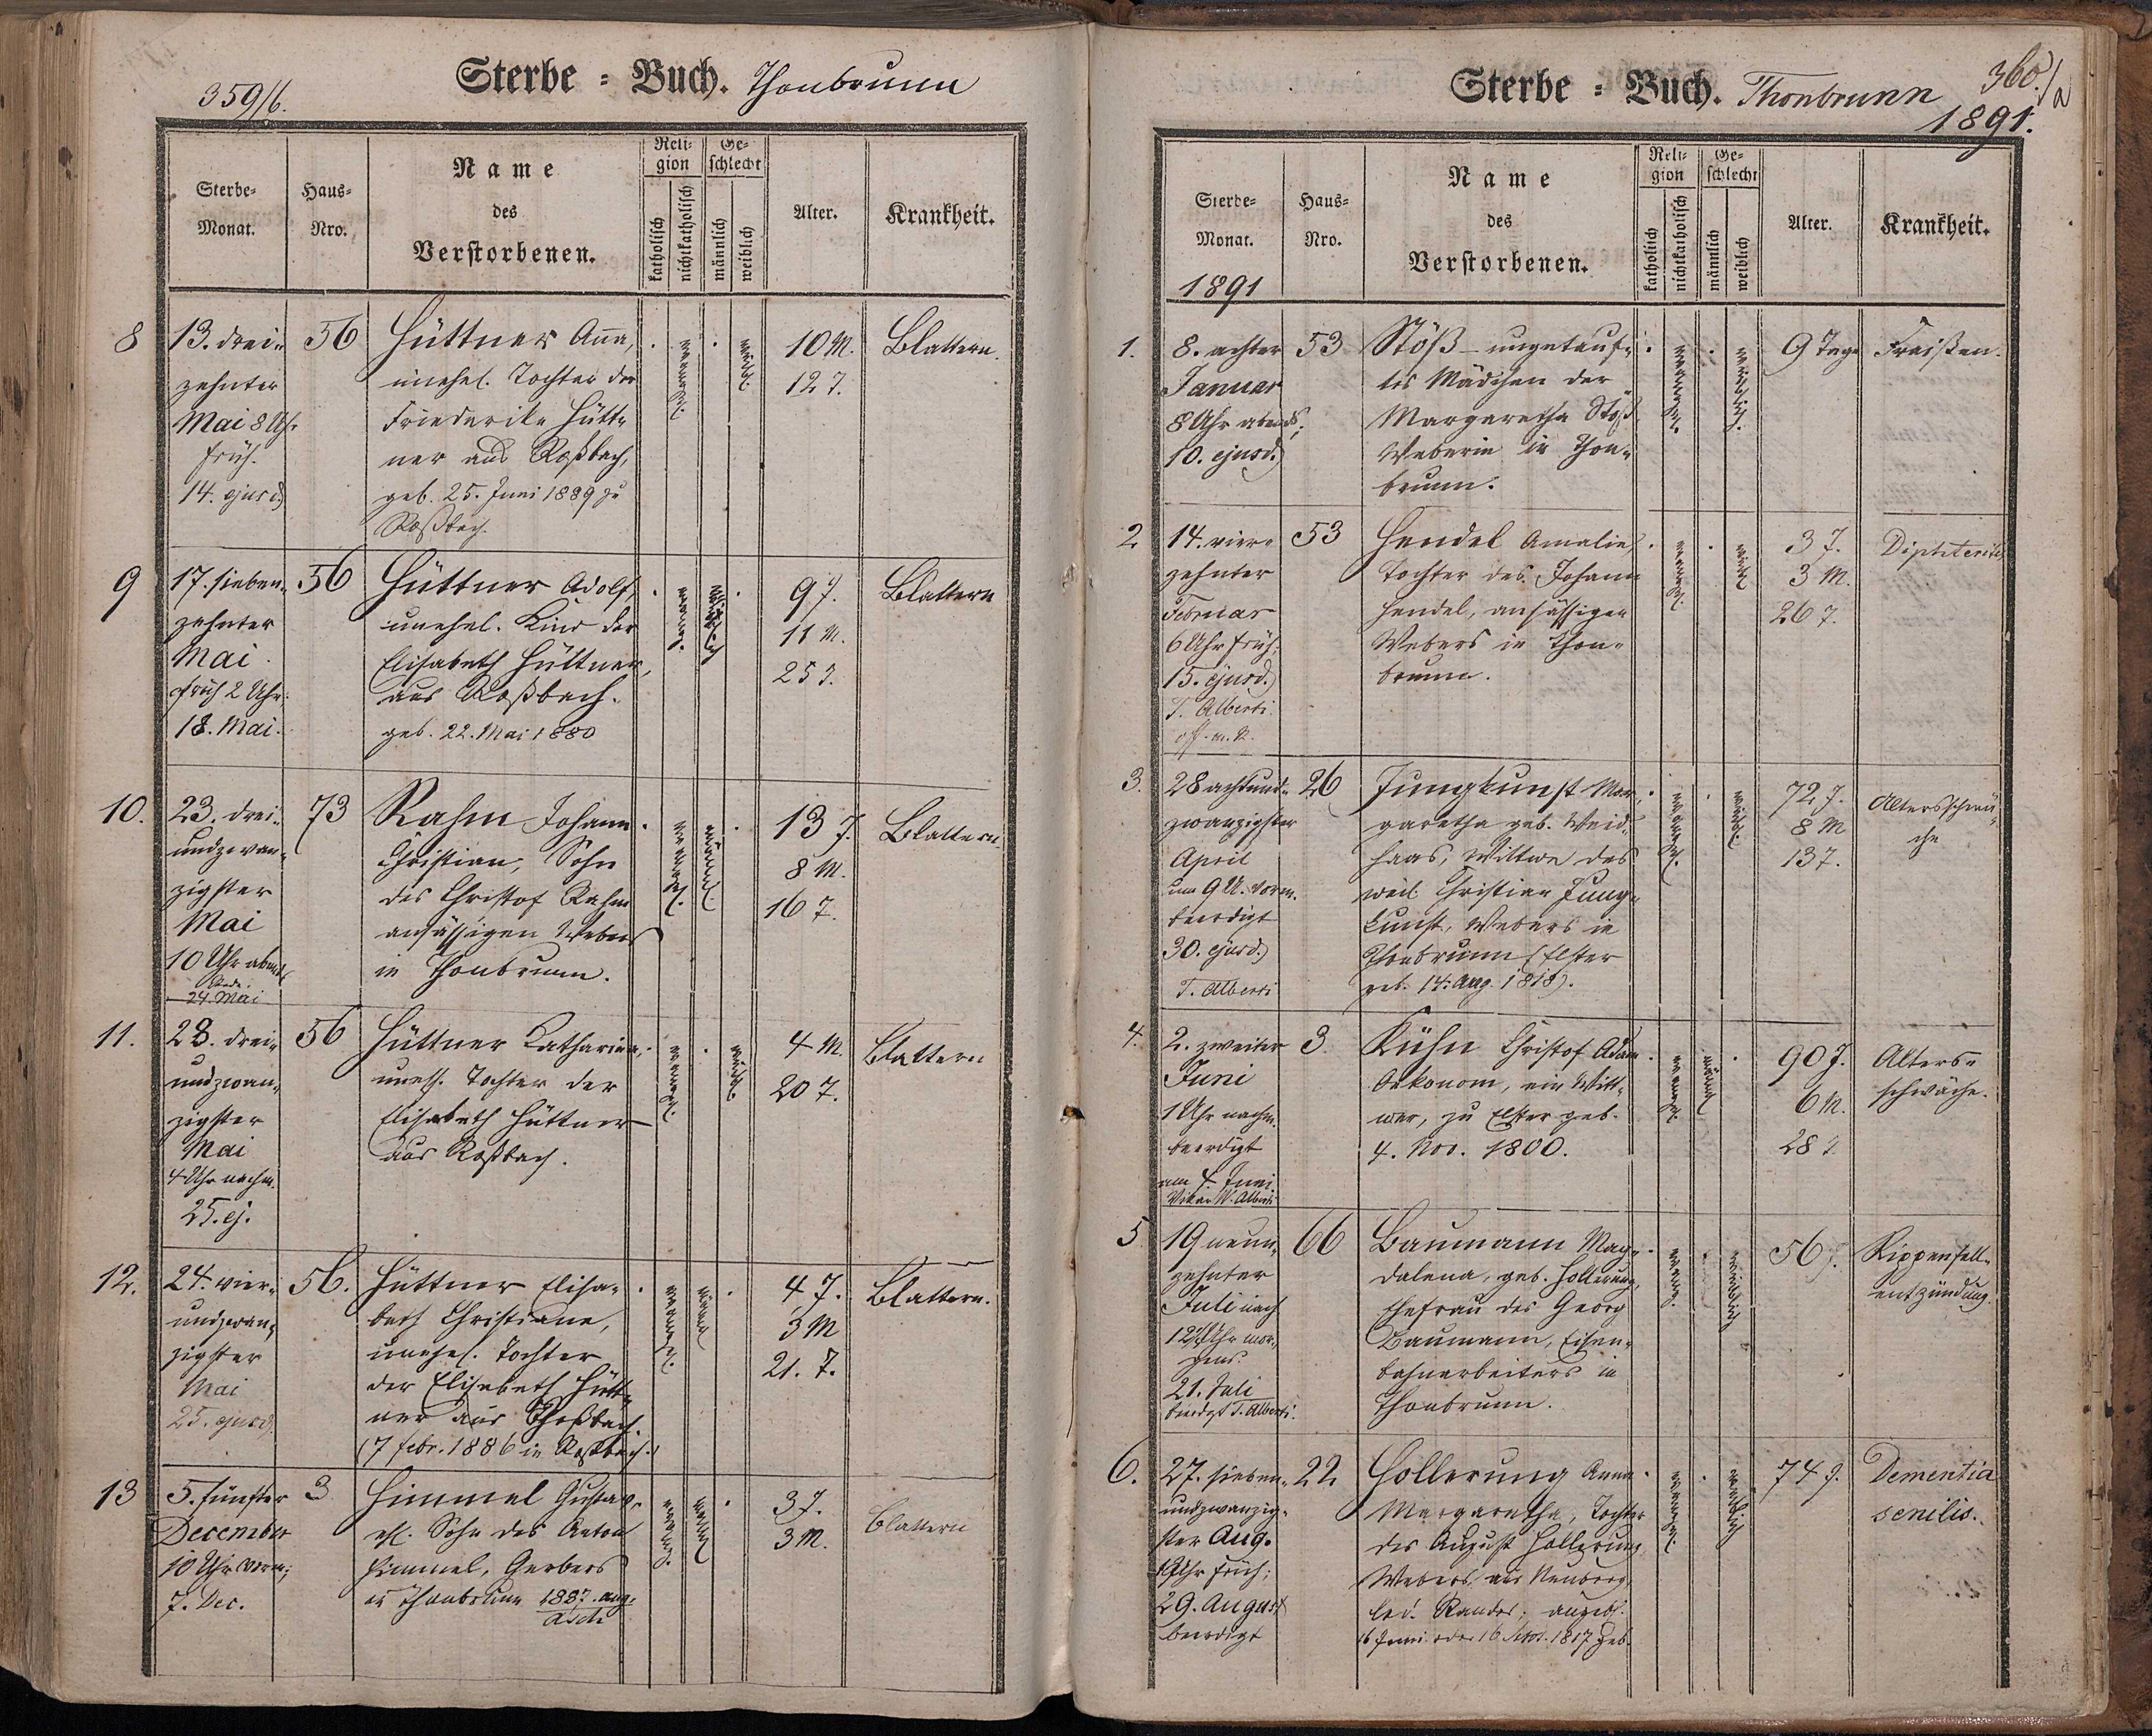 359/6.
Sterbe = Buch. Thonbrunn
Sterbe-Monat.
Haus-Nro.
Name des Verstorbenen.
Religion
katholisch
nichtkatholisch
Geschlecht
männlich
weiblich
Alter.
Krankheit.
8
13. drei-
zehnter
Mai 8 Uhr
früh.
14. ejusd.
56
Hüttner Anna,
unehel. Tochter der
Friederike Hütt-
ner aus Roßbach,
geb. 25. Juni 1889 zu
Roßbach.
10 M.
12 T.
Blattern.
9
17. sieben-
zehnter
Mai
früh 2 Uhr;
18. Mai.
56
Hüttner Adolf,
unehel. Kind der
Elisabeth Hüttner,
aus Roßbach.
geb. 22. Mai 1880
9 J.
11 M.
25 T.
Blattern
10.
23. drei-
undzwan-
zigster
Mai
10 Uhr abends
24. Mai
73
Rahm Johann
Christian, Sohn
des Christof Rahm
ansässigen Webers
in Thonbrunn.
13 J.
8 M.
16 T.
Blattern
11.
23. drei-
undzwan-
zigster
Mai
4 Uhr nachm.
25. ej.
56
Hüttner Katharina,
uneh. Tochter der
Elisabeth Hüttner
aus Roßbach.
4 M.
20 T.
Blattern
12.
24. vier-
undzwan-
zigster
Mai
25. ejusd.
56.
Hüttner Elisa-
beth Christiane,
unehel. Tochter
der Elisabeth Hütt-
ner aus Roßbach.
(7 febr. 1886 in Roßbach.)
4 J.
3 M
21. T.
Blattern.
13
5. fünfter
December
10 Uhr vorm;
7. Dec.
3
Himmel Gustav,
ehl. Sohn des Anton
Himmel, Gerbers
in Thonbrunn 1887. aug.
Asch
3 J.
3 M.
Blattern
360./a
Sterbe = Buch. Thonbrunn
1891.
Sterbe-Monat.
1891
Haus-Nro.
Name des Verstorbenen.
Religion
katholisch
nichtkatholisch
Geschlecht
männlich
weiblich
Alter.
Krankheit.
1.
8. achter
Januar
8 Uhr abends;
10. ejusd.
53
Stöß – ungetauf-
tes Mädchen der
Margaretha Stöß
Weberin in Thon-
brunn.
9 Tage
Fraißen.
2
14. vier-
zehnter
Februar
6 Uhr früh;
15. ejusd.
T. Alberti
53
Hendel Amalie,
Tochter des Johann
Hendel, ansässigen
Webers in Thon-
brunn.
3 J.
3 M.
26 T.
Diphteritis
3.
28 achtund-
zwanzigster
April
um 9 U. vorm.
beerdigt
30. ejusd.
T. Alberti
26
Jungkunst Mar-
garetha geb. Weid-
haas, Wittwe des
weil. Christian Jung-
kunst, Webers in
Thonbrunn (Elster
geb. 14. Aug. 1818).
72 J.
8 M
13 T.
Altersschwä-
che
4.
2. zweiter
Juni
1 Uhr nachm.
beerdigt
am 4 Juni.
Vikar W. Alberti
3.
Kühn Christof Adam
Oekonom, ein Witt-
wer, zu Elster geb.
4. Nov. 1800.
90 J.
6 M.
28 T.
Alters-
schwäche.
5
19 neun-
zehnter
Juli nach
12 Uhr mor-
gens.
21. Juli
beerdgt T. Alberti.
66
Baumann Mag-
dalena, geb. Hollerung,
Ehefrau des Georg
Baumann, Eisen-
bahnarbeiters in
Thonbrunn.
56 J.
Rippenfell-
entzündung.
6.
27. sieben-
undzwanzig-
ster Aug.
Uhr früh;
29. August
beerdigt
22
Hollerung Anna
Margaretha, Tochter
des August Hollerung
Webers aus Neuberg,
led. Standes; angebl.
16 Juni oder 16 Nov. 1817 geb.
74 J.
Dementia
senilis.